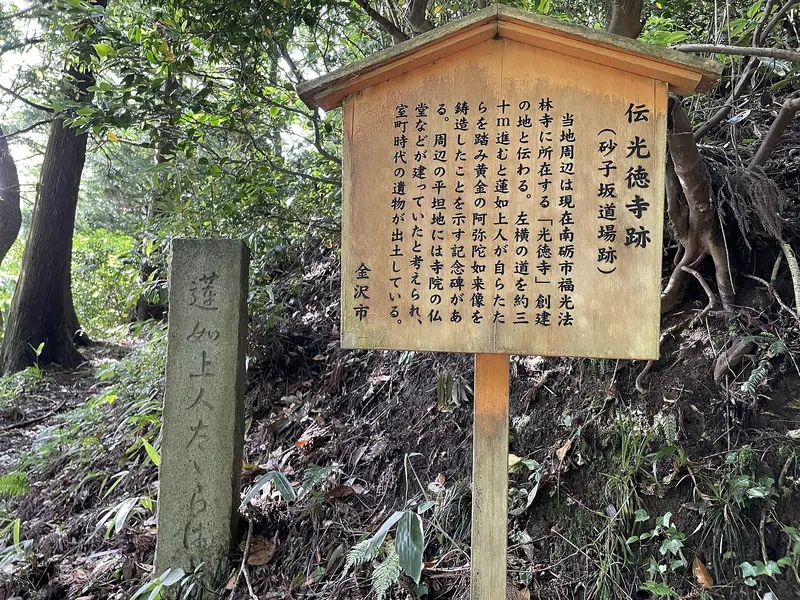 伝 光徳寺跡
（砂子坂道場跡）
当地周辺は現在南砺市福光法
林寺に所在する「光徳寺」創建
の地と伝わる。左横の道を約三
十m進むと蓮如上人が自らたた
らを踏み黄金の阿弥陀如来像を
鋳造したことを示す記念碑があ
る。周辺の平坦地には寺院の仏
堂などが建っていたと考えられ、
室町時代の遺物が出土している。
金沢市
蓮如上人たゝら